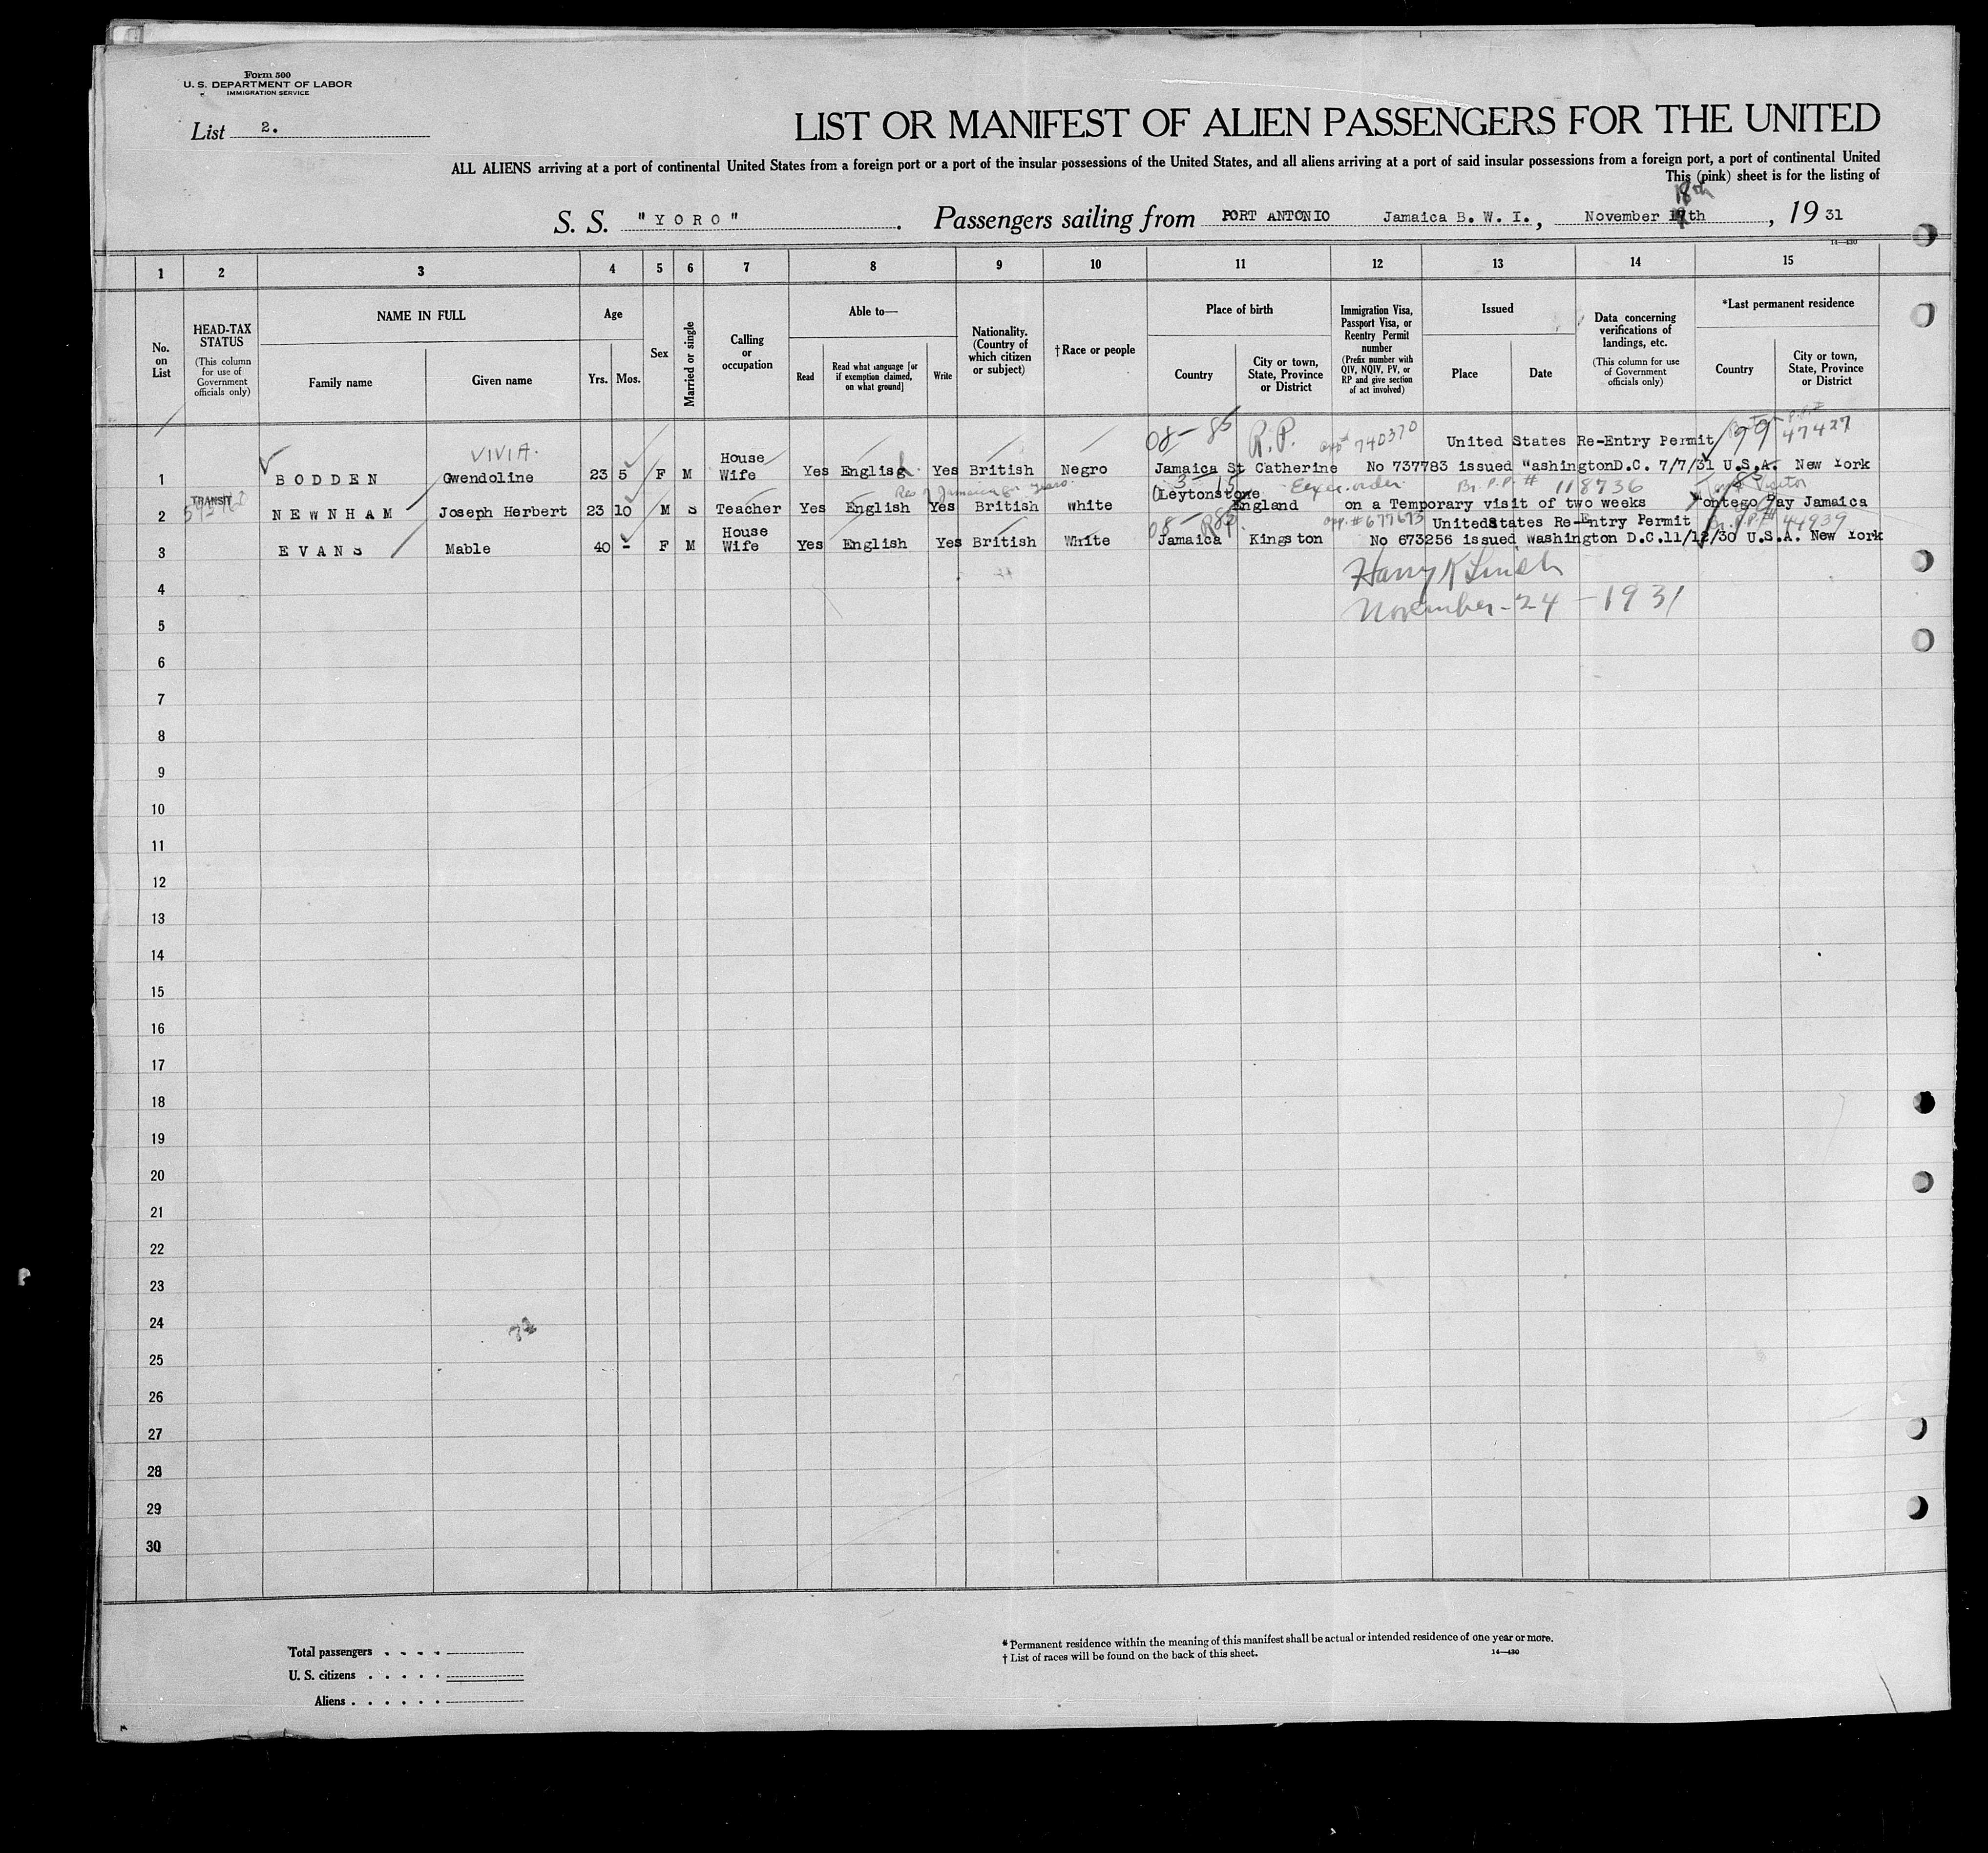 Form 500
U. S. DEPARTMENT OF LABOR
IMMIGRATION SERVICE
List 2.
LIST OR MANIFEST OF ALIEN PASSENGERS FOR THE UNITED
ALL ALIENS arriving at a port of continental United States from a foreign port or a port of the insular possessions of the United States, and all aliens arriving at a port of said insular possessions from a foreign port, a port of continental United
This (pink) sheet is for the listing of
18th
S. S. "YORO". Passengers sailing from PORT ANTONIO Jamaica B. W. I., November th, 19 31
14—430
1 2 3 4 5 6 7 8 9 10 11 12 13 14 15
No. on List
HEAD-TAX STATUS
(This column for use of Government officials only)
NAME IN FULL
Family name
Given name
Age
Yrs.
Mos.
Sex
Married or single
Calling or occupation
Able to—
Read
Read what language [or if exemption claimed, on what ground]
Write
Nationality. (Country of which citizen or subject)
†Race or people
Place of birth
Country
City or town, State, Province or District
Immigration Visa, Passport Visa, or Reentry Permit number
(Prefix number with QIV, NQIV, PV, or RP and give section of act involved)
Issued
Place
Date
Data concerning verifications of landings, etc.
(This column for use of Government officials only)
*Last permanent residence
Country
City or town, State, Province or District
VIVIA. 08 - 85 R.P. 740370 United States Re-Entry Permit 99 47427
1 BODDEN Gwendoline 23 5 F M House Wife Yes English Yes British Negro Jamaica St Catherine No 737783 issued WashingtonD.C. 7/7/31 U.S.A. New York
TRANSIT Res of Jamaica years. 3 - 15 Br. P.P. # 118736 Visitor
2 NEWNHAM Joseph Herbert 23 10 M S Teacher Yes English Yes British White (Leytonstone England on a Temporary visit of two weeks Montego Bay Jamaica
08 - 85 R.P. # 677673 UnitedStates Re-Entry Permit Br. P.P.# 44939
3 EVANS Mable 40 - F M House Wife Yes English Yes British White Jamaica Kingston No 673256 issued Washington D.C.11/12/30 U.S.A. New York
4
Harry K
November - 24 - 1931
5
6
7
8
9
10
11
12
13
14
15
16
17
18
19
20
21
22
23
24
25
26
27
28
29
30
Total passengers
U. S. citizens
Aliens
* Permanent residence within the meaning of this manifest shall be actual or intended residence of one year or more.
† List of races will be found on the back of this sheet.
14—430